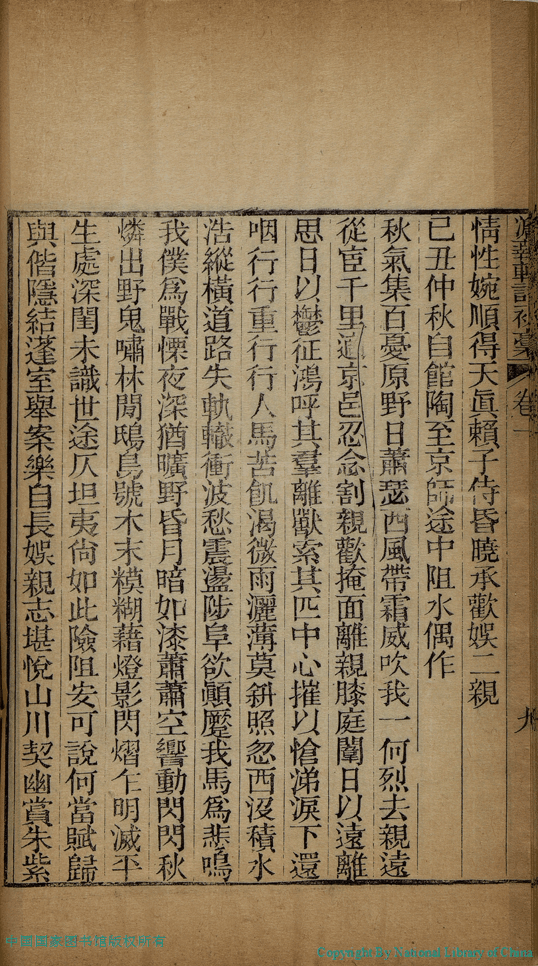 卷一
九
情性婉順得天眞賴子侍昏曉承歡娛二親
己丑仲秋自館陶至京師途中阻水偶作
秋氣集百憂原野日蕭瑟西風帶霜威吹我一何烈去親遠
從宦千里適京邑忍念割親歡掩面離親膝庭闈日以遠離
思日以鬱征鴻呼其羣離獸索其匹中心摧以愴涕淚下還
咽行行重行行人馬苦飢渴微雨灑薄莫斜照忽西沒積水
浩縱橫道路失軌轍衝波愁震盪陟阜欲顚蹷我馬爲悲鳴
我僕爲戰慄夜深猶曠野昏月暗如漆蕭蕭空響動閃閃秋
燐出野鬼嘯林閒鴟鳥號木末糢糊藉燈影閃熠乍明滅平
生處深閨未識世途仄坦夷尙如此險阻安可說何當賦歸
與偕隱結蓬室舉案樂自長娛親志堪悅山川契幽賞朱紫
中國國家图书馆版权所有
Copyright by National Library of China